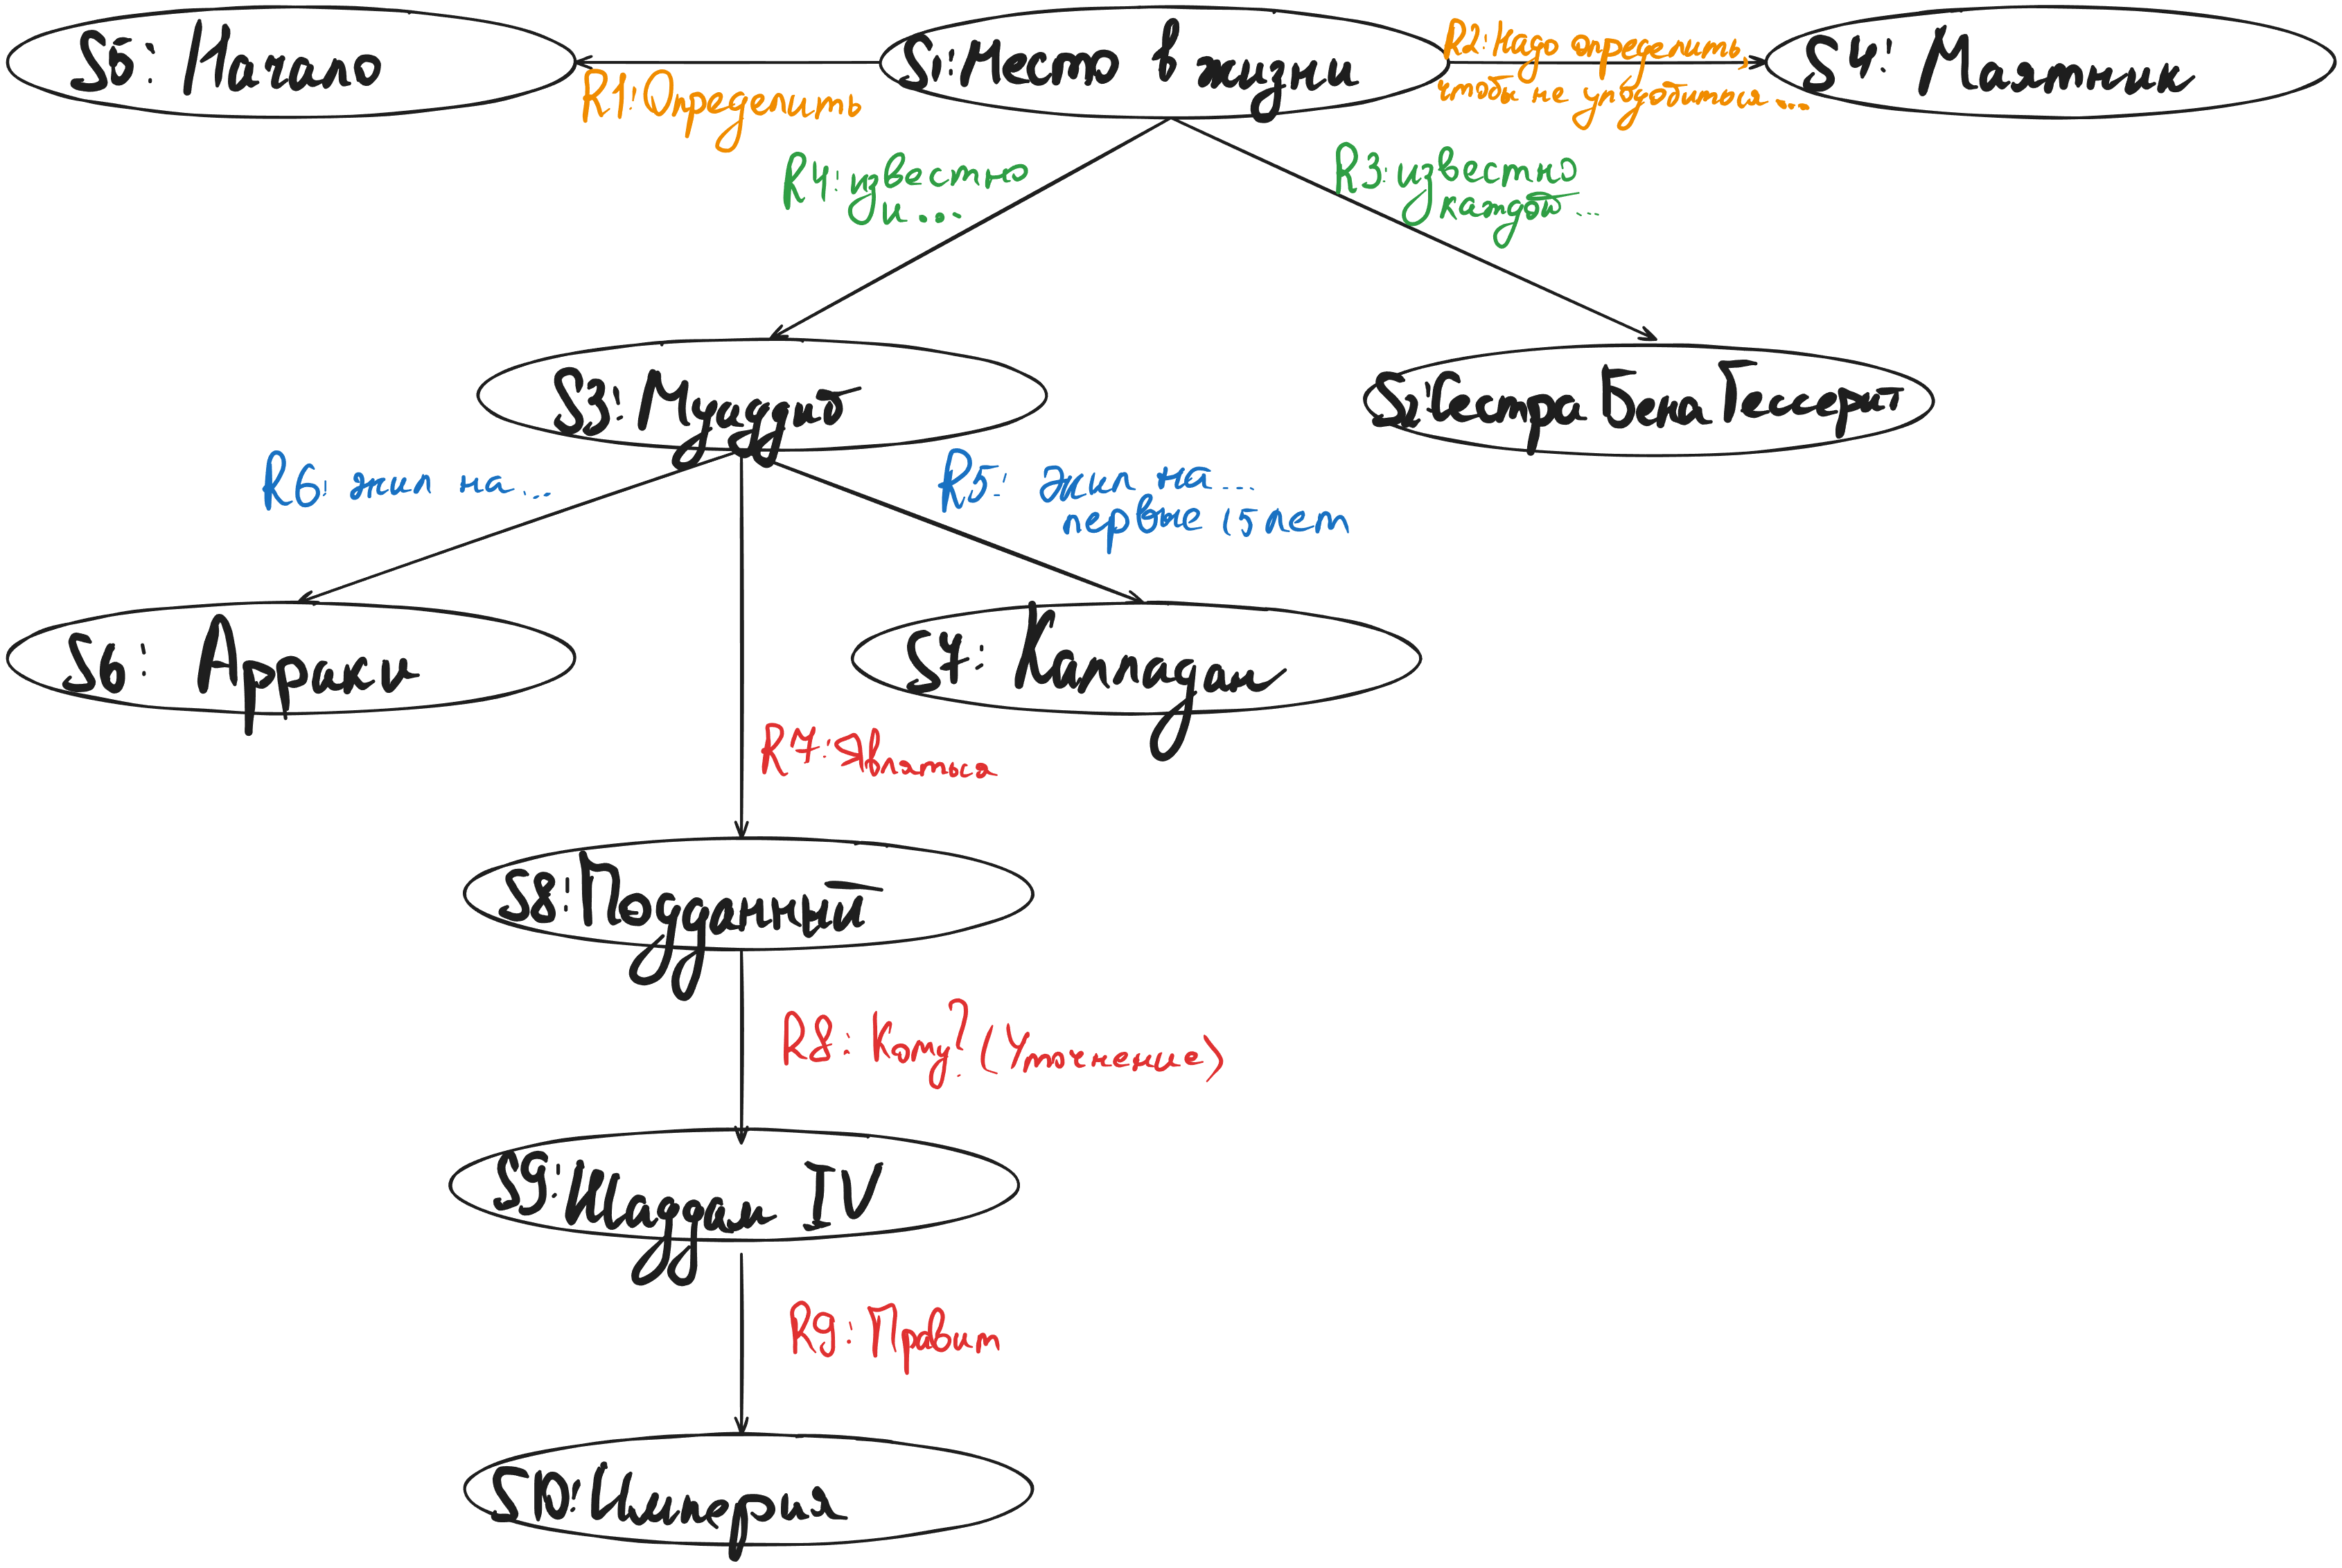 S5: Начало
S1: Место в жизни
R2: Надо определить,
чтобы не уподобиться ...
S4: Маятник
R1: Определить
R4: известно
и ...
R3: известно
каждой ...
S3: Муаддиб
S2: Сестра Бене Гессерит
R6: жил на ...
R5: Жил на ...
первые 15 лет
S6: Арраки
S7: Каладан
R7: Являться
S8: Подданный
R8: Кому? (Уточнение)
S9: Шаддам IV
R9: Правит
S10: Империя